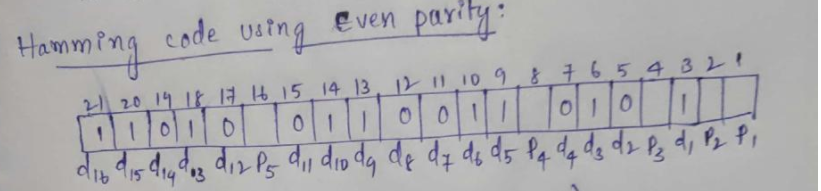 Hamming code using Even parity:
21 20 19 18 17 16 15 14 13 12 11 10 9 8 7 6 5 4 3 2 1
1 1 0 1 0 0 1 1 0 0 1 1 0 1 0 1
d16 d15 d14 d13 d12 P5 d11 d10 d9 d8 d7 d6 d5 P4 d4 d3 d2 P3 d1 P2 P1